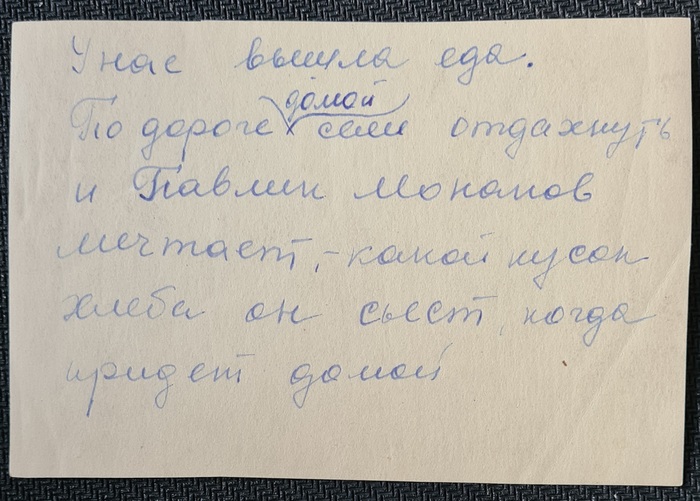 У нас вышла еда.
По дороге домой сели отдахнуть
и Павлик Монахов
мечтает, - какой кусок
хлеба он съест, когда
придет домой